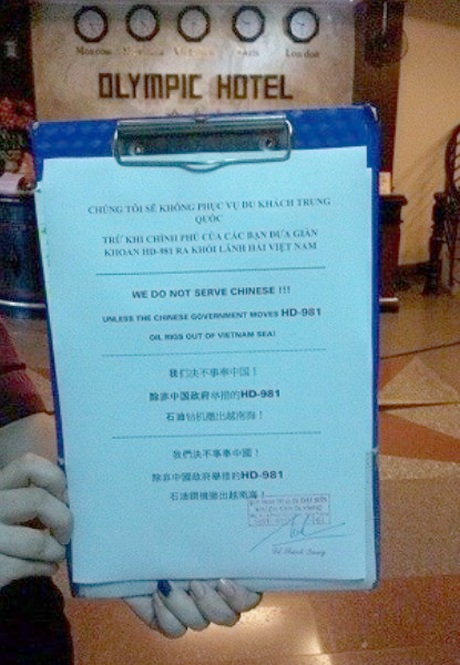 Moscow
Paris
London
OLYMPIC HOTEL
CHÚNG TÔI SẼ KHÔNG PHỤC VỤ DU KHÁCH TRUNG
QUỐC
TRỪ KHI CHÍNH PHỦ CỦA CÁC BẠN ĐƯA GIÀN
KHOAN HD-981 RA KHỎI LÃNH HẢI VIỆT NAM
WE DO NOT SERVE CHINESE !!!
UNLESS THE CHINESE GOVERNMENT MOVES HD-981
OIL RIGS OUT OF VIETNAM SEA!
我们决不事奉中国！
除非中国政府举措的HD-981
石油钻机撤出越南海！
我們決不事奉中國！
除非中國政府舉措的HD-981
石油鑽機撤出越南海！